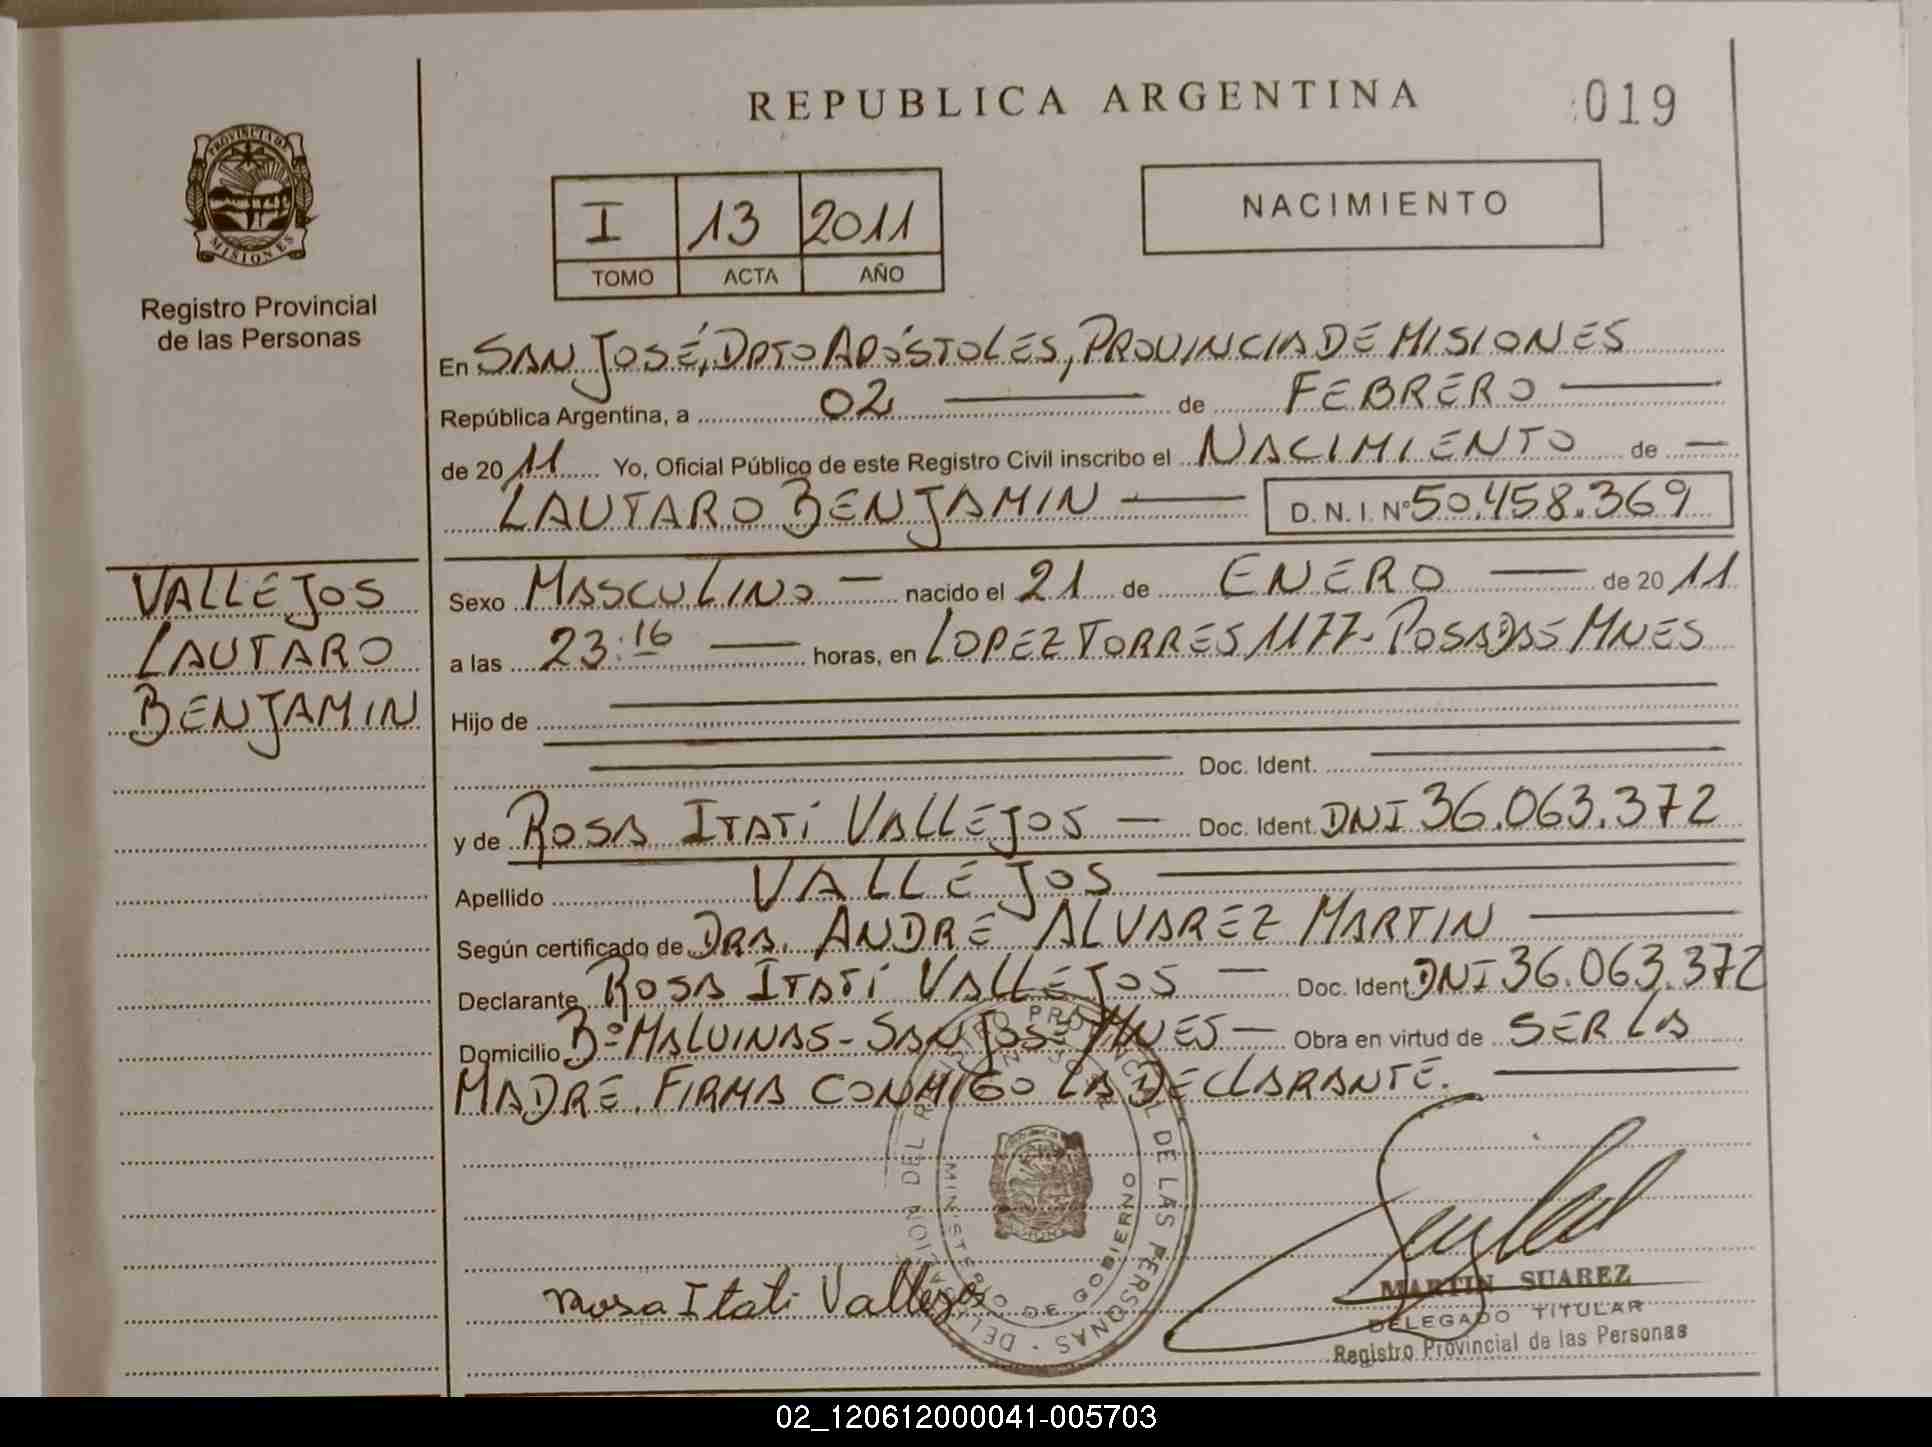 REPUBLICA ARGENTINA
019
PROVINCIA DE
MISIONES
Registro Provincial
de las Personas
I 13 2011
TOMO ACTA AÑO
NACIMIENTO
En SAN JOSÉ, DPTO APÓSTOLES, PROVINCIA DE MISIONES
República Argentina, a 02 de FEBRERO
de 20 11 Yo, Oficial Público de este Registro Civil inscribo el NACIMIENTO de
LAUTARO BENJAMIN D.N.I. Nº 50.458.369
VALLEJOS
LAUTARO
BENJAMIN
Sexo MASCULINO nacido el 21 de ENERO de 20 11
a las 23:16 horas, en LOPEZ TORRES 1177- POSADAS MNES
Hijo de
Doc. Ident.
y de ROSA ITATÍ VALLEJOS Doc. Ident. DNI 36.063.372
Apellido VALLEJOS
Según certificado de DRA. ANDRE ALVAREZ MARTIN
Declarante ROSA ITATÍ VALLEJOS Doc. Ident DNI 36.063.372
Domicilio Bº MALVINAS - SAN JOSÉ MNES Obra en virtud de SER LA
MADRE. FIRMA CONMIGO LA DECLARANTE.
DEL REGISTRO PROVINCIAL DE LAS PERSONAS
MINISTERIO DE GOBIERNO
Rosa Itati Vallejos
MARTIN SUAREZ
DELEGADO TITULAR
Registro Provincial de las Personas
02_120612000041-005703